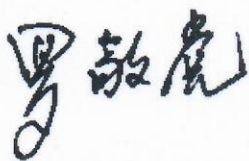 罗敬虎